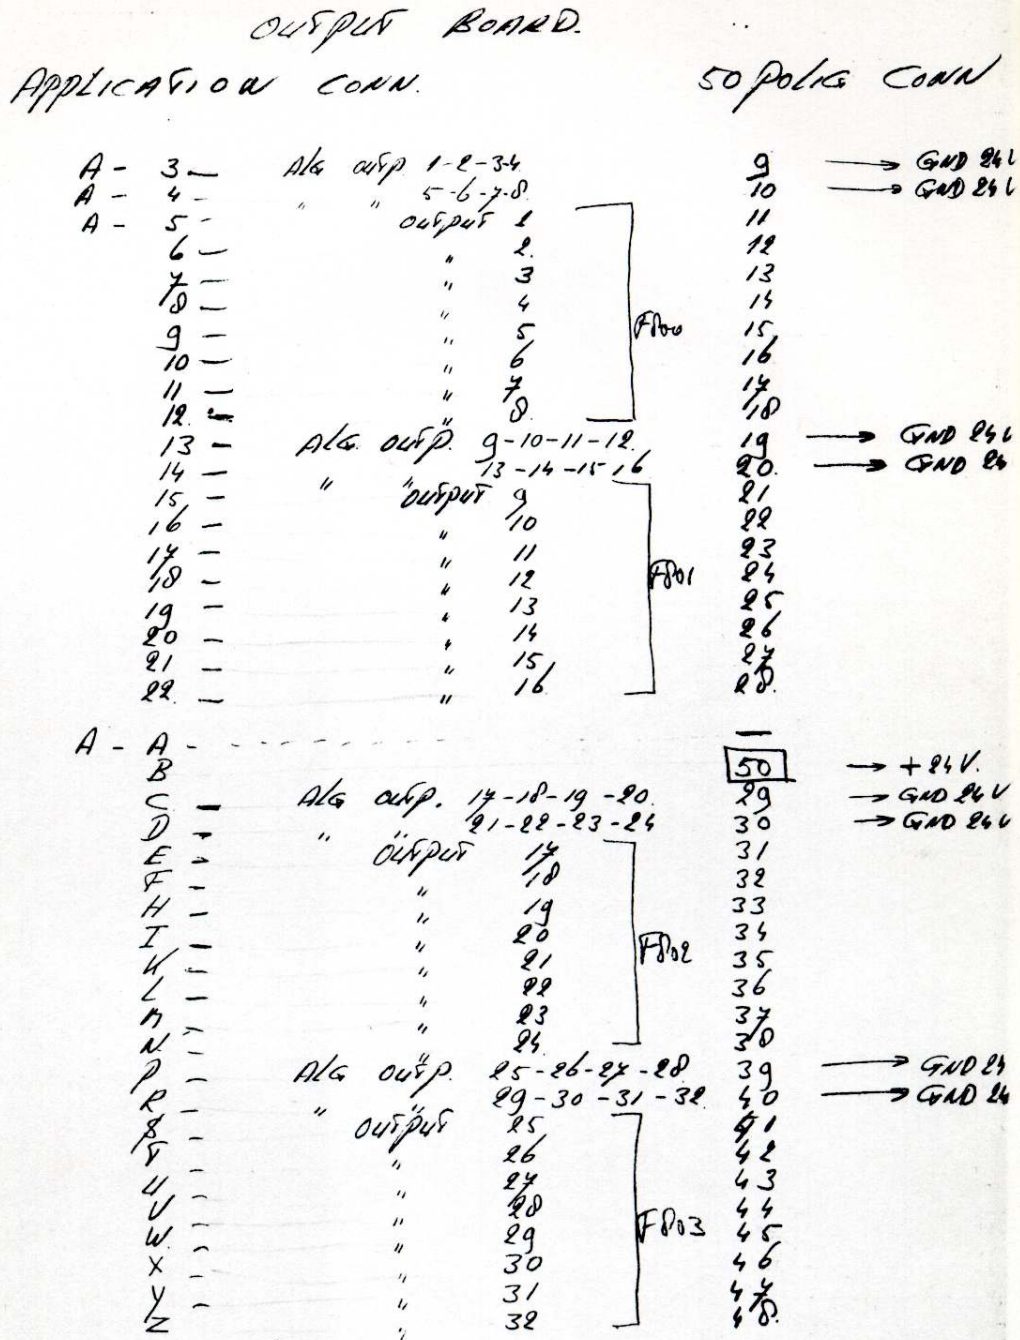 OUTPUT BOARD.
APPLICATION CONN. 50 POLIG CONN
A - 3 - ALG OUTP. 1-2-3-4. 9 → GND 24V
A - 4 - " " 5-6-7-8. 10 → GND 24V
A - 5 - OUTPUT 1 11
6 - " 2. 12
7 - " 3 13
8 - " 4 14
9 - " 5 F800 15
10 - " 6 16
11 - " 7 17
12. - " 8. 18
13 - ALG. OUTP. 9-10-11-12. 19 → GND 24V
14 - " " 13-14-15 16 20. → GND 24
15 - OUTPUT 9 21
16 - " 10 22
17 - " 11 23
18 - " 12 F801 24
19 - " 13 25
20 - " 14 26
21 - " 15 27
22. - " 16 28.
A - A - - - - - - - - - - —
B 50 → +24V.
C - ALG OUTP. 17-18-19-20. 29 → GND 24V
D - " " 21-22-23-24 30 → GND 24V
E - OUTPUT 17 31
F - " 18 32
H - " 19 33
I - " 20 34
K - " 21 F802 35
L - " 22 36
M - " 23 37
N. - " 24. 38
P - ALG OUTP. 25-26-27-28. 39 → GND 24
R - " " 29-30-31-32 40 → GND 24
S - OUTPUT 25 41
T - " 26 42
U - " 27 43
V - " 28 44
W. - " 29 F803 45
X - " 30 46
Y - " 31 47
Z " 32 48.